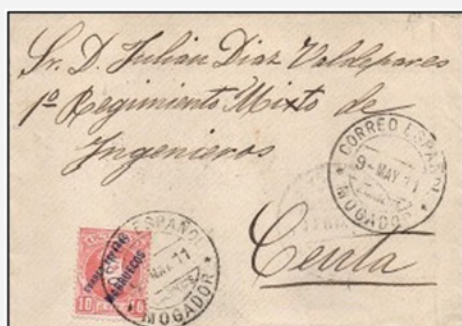 Sr. D. Julian Diaz Valdepares
1º Regimiento Mixto de
Ingenieros
CORREO ESPAÑOL
9-MAY 11
MOGADOR
Ceuta
ESPAÑOL
MAY 11
MOGADOR
MARRUECOS
10 10